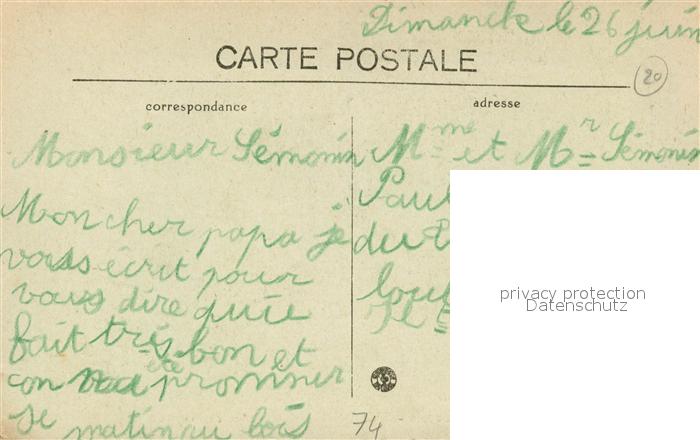 Dimanche le 26 juin
CARTE POSTALE
20
correspondance
adresse
Monsieur Sémonin
Mme et Mr Sémonin
Paul
Mon cher papa je
du
vous écrit pour
vous dire qu'ie
fait très bon et
été
con promner
se matin au bois
74
privacy protection
Datenschutz